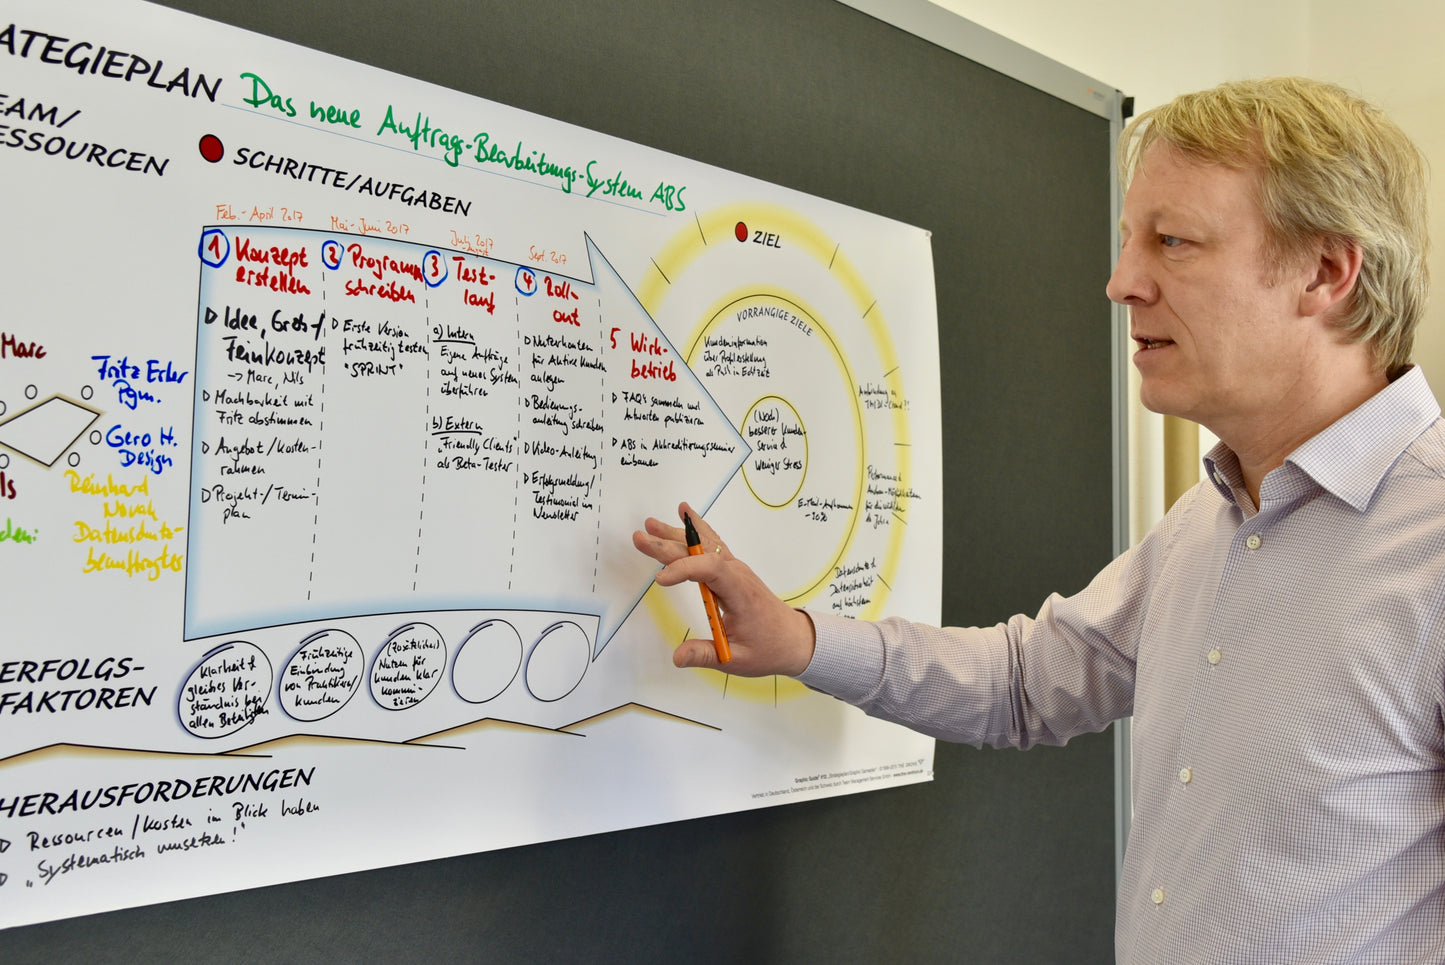 ATEGIEPLAN Das neue Auftrags-Bearbeitungs-System ABS
EAM/
ESSOURCEN
Marc
Fritz Erler
Pgm.
Gero H.
Design
ls
Reinhard
Novak
Datenschutz-
beauftragter
den:
SCHRITTE/AUFGABEN
Feb.-April 2017
1 Konzept
erstellen
Idee, Grob-/
Feinkonzept
-> Marc, Nils
Machbarkeit mit
Fritz abstimmen
Angebot/Kosten-
rahmen
Projekt-/Termin-
plan
Mai-Juni 2017
2 Programm
schreiben
Erste Version
frühzeitig testen
"SPRINT"
2017
3 Test-
lauf
a) Intern
Eigene Aufträge
auf neues System
überführen
b) Extern
"Friendly Clients"
als Beta-Tester
Sept. 2017
4 Roll-
out
Nutzerkonten
für Aktive Kunden
anlegen
Bedienungs-
anleitung schreiben
Video-Anleitung
Erfolgsmeldung/
Testimonial im
Newsletter
5 Wirk-
betrieb
FAQ's sammeln und
Antworten publizieren
ABS in Akkreditierungsseminar
einbauen
ZIEL
VORRANGIGE ZIELE
Kundeninformation
über Profilerstellung
als PDF in Echtzeit
(Noch)
besserer Kunden-
service &
Weniger Stress
E-Mail-Aufkommen
-20%
Anbindung an
Performance &
Datenschutz &
Datensicherheit
auf höchstem
ERFOLGS-
FAKTOREN
Klarheit &
gleiches Ver-
ständnis bei
allen Beteiligten
Frühzeitige
Einbindung
von Praktikern/
Kunden
(Zusätzlicher)
Nutzen für
Kunden klar
kommuni-
zieren
HERAUSFORDERUNGEN
Ressourcen/Kosten im Blick haben
"Systematisch umsetzen!"